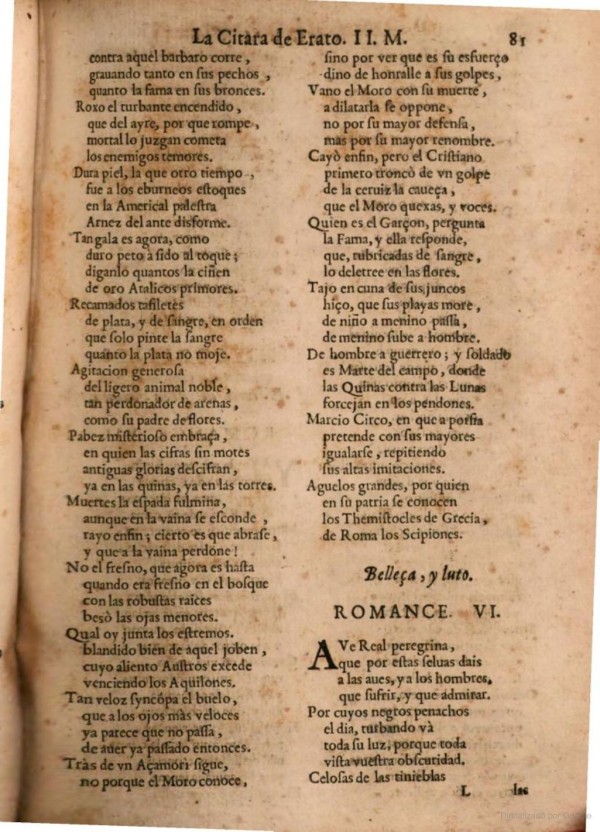 La Citara de Erato. II. M. 81
contra aquel barbaro corre,
grauando tanto en sus pechos,
quanto la fama en sus bronces.
Roxo el turbante encendido,
que del ayre, por que rompe,
mortal lo juzgan cometa
los enemigos temores.
Dura piel, la que otro tiempo,
fue a los eburneos estoques
en la Americal palestra
Arnez del ante disforme.
Tan gala es agora, como
duro peto a sido al toque;
diganlo quantos la ciñen
de oro Atalicos primores.
Recamados tafiletes
de plata, y de sangre, en orden
que solo pinte la sangre
quanto la plata no moje.
Agitacion generosa
del ligero animal noble,
tan perdonador de arenas,
como su padre de flores.
Pabez misterioso embraça,
en quien las cifras sin motes
antiguas glorias descifran,
ya en las quinas, ya en las torres.
Muertes la espada fulmina,
aunque en la vaina se esconde,
rayo enfin; cierto es que abrase,
y que a la vaina perdone!
No el fresno, que agora es hasta
quando era fresno en el bosque
con las robustas raices
besò las ojas menores.
Qual oy junta los estremos.
blandido bien de aquel joben,
cuyo aliento Austros excede
venciendo los Aquilones.
Tan veloz syncópa el buelo,
que a los ojos màs veloces
ya parece que no passa,
de auer ya passado entonces.
Tràs de vn Açamori sigue,
no porque el Moro conoce,
sino por ver que es su esfuerço
dino de honralle a sus golpes,
Vano el Moro con su muerte,
a dilatarla se oppone,
no por su mayor defensa,
mas por su mayor renombre.
Cayò enfin, pero el Cristiano
primero troncò de vn golpe
de la ceruiz la caueça,
que el Moro quexas, y voces.
Quien es el Garçon, pergunta
la Fama, y ella responde,
que, rubricadas de sangre,
lo deletree en las flores.
Tajo en cuna de sus juncos
hiço, que sus playas more,
de niño a menino passa,
de menino sube a hombre.
De hombre a guerrero; y soldado
es Marte del campo, donde
las Quinas contra las Lunas
forcejan en los pendones.
Marcio Circo, en que a porfia
pretende con sus mayores
igualarse, repitiendo
sus altas imitaciones.
Aguelos grandes, por quien
en su patria se conocen
los Themistocles de Grecia,
de Roma los Scipiones.
Belleça, y luto.
ROMANCE. VI.
AVe Real peregrina,
que por estas seluas dais
a las aues, y a los hombres,
que sufrir, y que admirar.
Por cuyos negros penachos
el dia, turbando và
toda su luz, porque toda
vista vuestra obscuridad.
Celosas de las tinieblas
L las